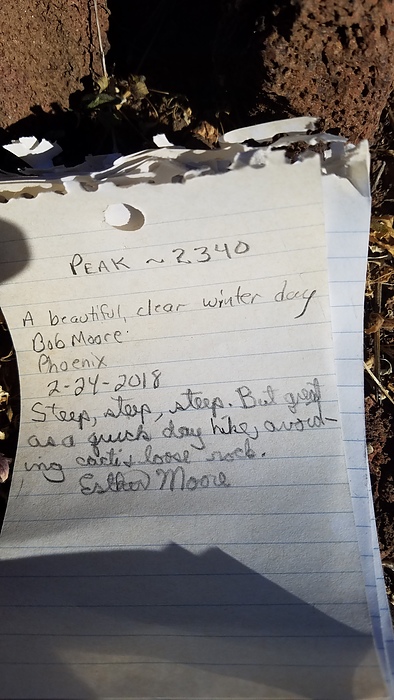 PEAK ~ 2340
A beautiful, clear winter day
Bob Moore
Phoenix
2-24-2018
Steep, steep, steep. But great
as a quick day hike, avoid-
ing cacti & loose rock.
Esther Moore